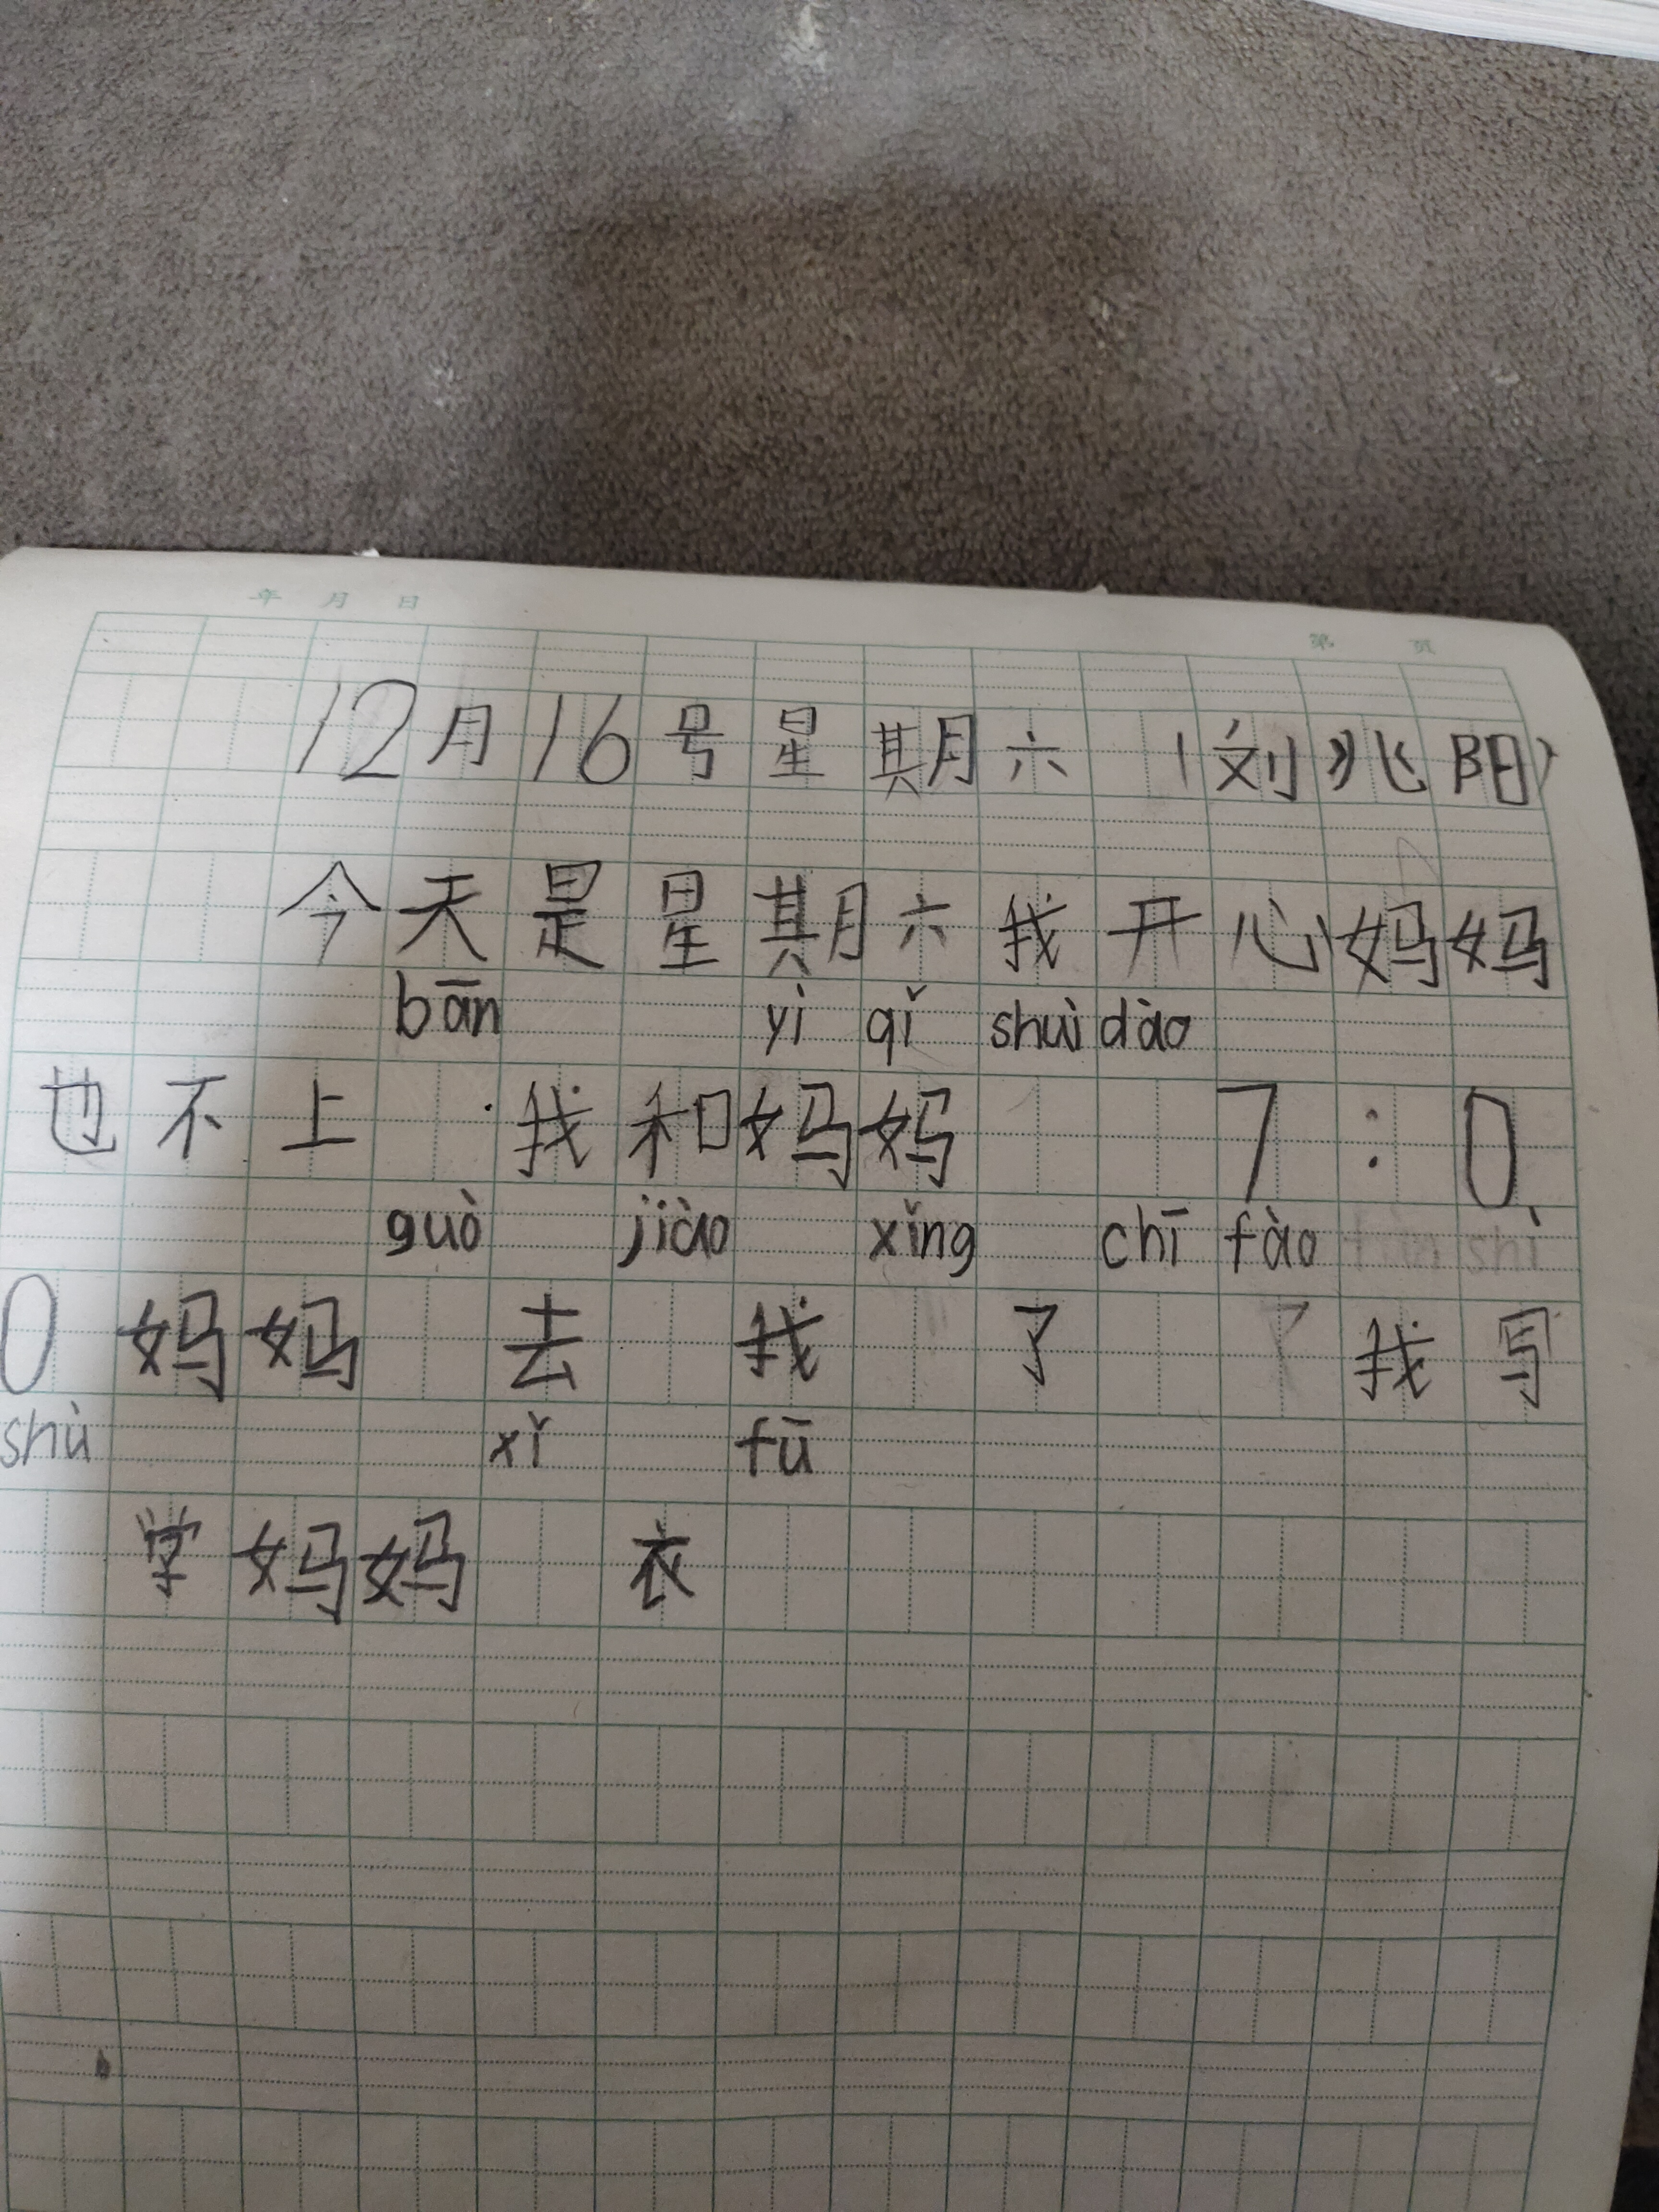 年 月 日
第 页
12月16号星期六（刘兆阳）
今天是星期六我开心妈妈
bān yì qǐ shuì dào
也不上 我和妈妈 7:0
guò jiào xǐng chī fào shì
0妈妈 去 我 了 我写
shù xǐ fū
学妈妈 衣